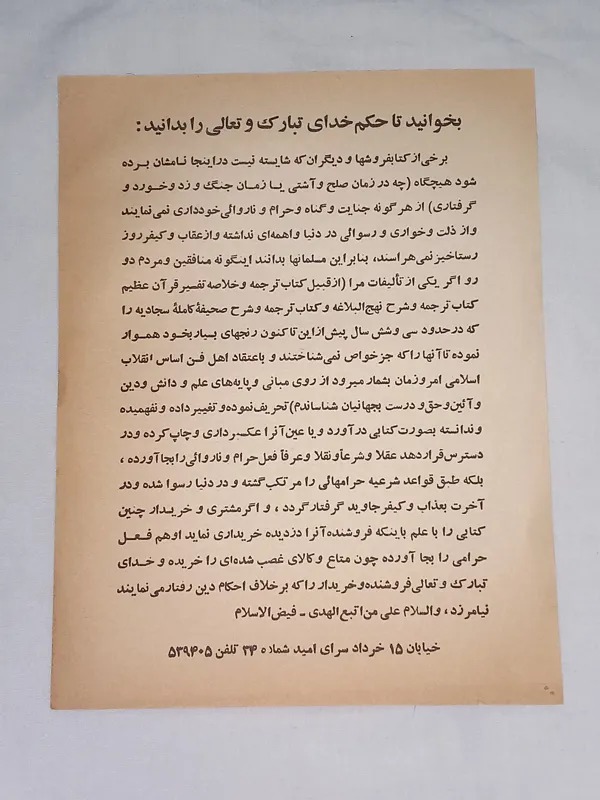 بخوانید تا حکم خدای تبارک و تعالی را بدانید:
برخی از کتابفروشها و دیگران که شایسته نیست در اینجا نامشان برده
شود هیچگاه (چه در زمان صلح و آشتی یا زمان جنگ و زد و خورد و
گرفتاری) از هر گونه جنایت و گناه و حرام و ناروائی خودداری نمی‌نمایند
و از ذلت و خواری و رسوائی در دنیا واهمه‌ای نداشته و از عقاب و کیفر روز
رستاخیز نمی‌هراسند، بنابراین مسلمانها بدانند اینگونه منافقین و مردم دو
رو اگر یکی از تألیفات مرا (از قبیل کتاب ترجمه و خلاصه تفسیر قرآن عظیم
کتاب ترجمه و شرح نهج‌البلاغه و کتاب ترجمه و شرح صحیفهٔ کاملهٔ سجادیه را
که در حدود سی و شش سال پیش از این تا کنون رنجهای بسیار بخود هموار
نموده تا آنها را که جز خواص نمی‌شناختند و باعتقاد اهل فن اساس انقلاب
اسلامی امروز مان بشمار میرود از روی مبانی و پایه‌های علم و دانش و دین
و آئین و حق و درست بجهانیان شناساندم) تحریف نموده و تغییر داده و نفهمیده
و ندانسته بصورت کتابی در آورد و یا عین آنرا عکسبرداری و چاپ کرده و در
دسترس قرار دهد عقلا و شرعاً و نقلا و عرفاً فعل حرام و ناروائی را بجا آورده ،
بلکه طبق قواعد شرعیه حرامهائی را مرتکب گشته و در دنیا رسوا شده و در
آخرت بعذاب و کیفر جاوید گرفتار گردد ، و اگر مشتری و خریدار چنین
کتابی را با علم باینکه فروشنده آنرا دزدیده خریداری نماید او هم فعل
حرامی را بجا آورده چون متاع و کالای غصب شده‌ای را خریده و خدای
تبارک و تعالی فروشنده و خریدار را که بر خلاف احکام دین رفتار می نمایند
نیامرزد ، والسلام علی من اتبع الهدی - فیض الاسلام
خیابان ۱۵ خرداد سرای امید شماره ۳۴ تلفن ۵۳۹۴۰۵